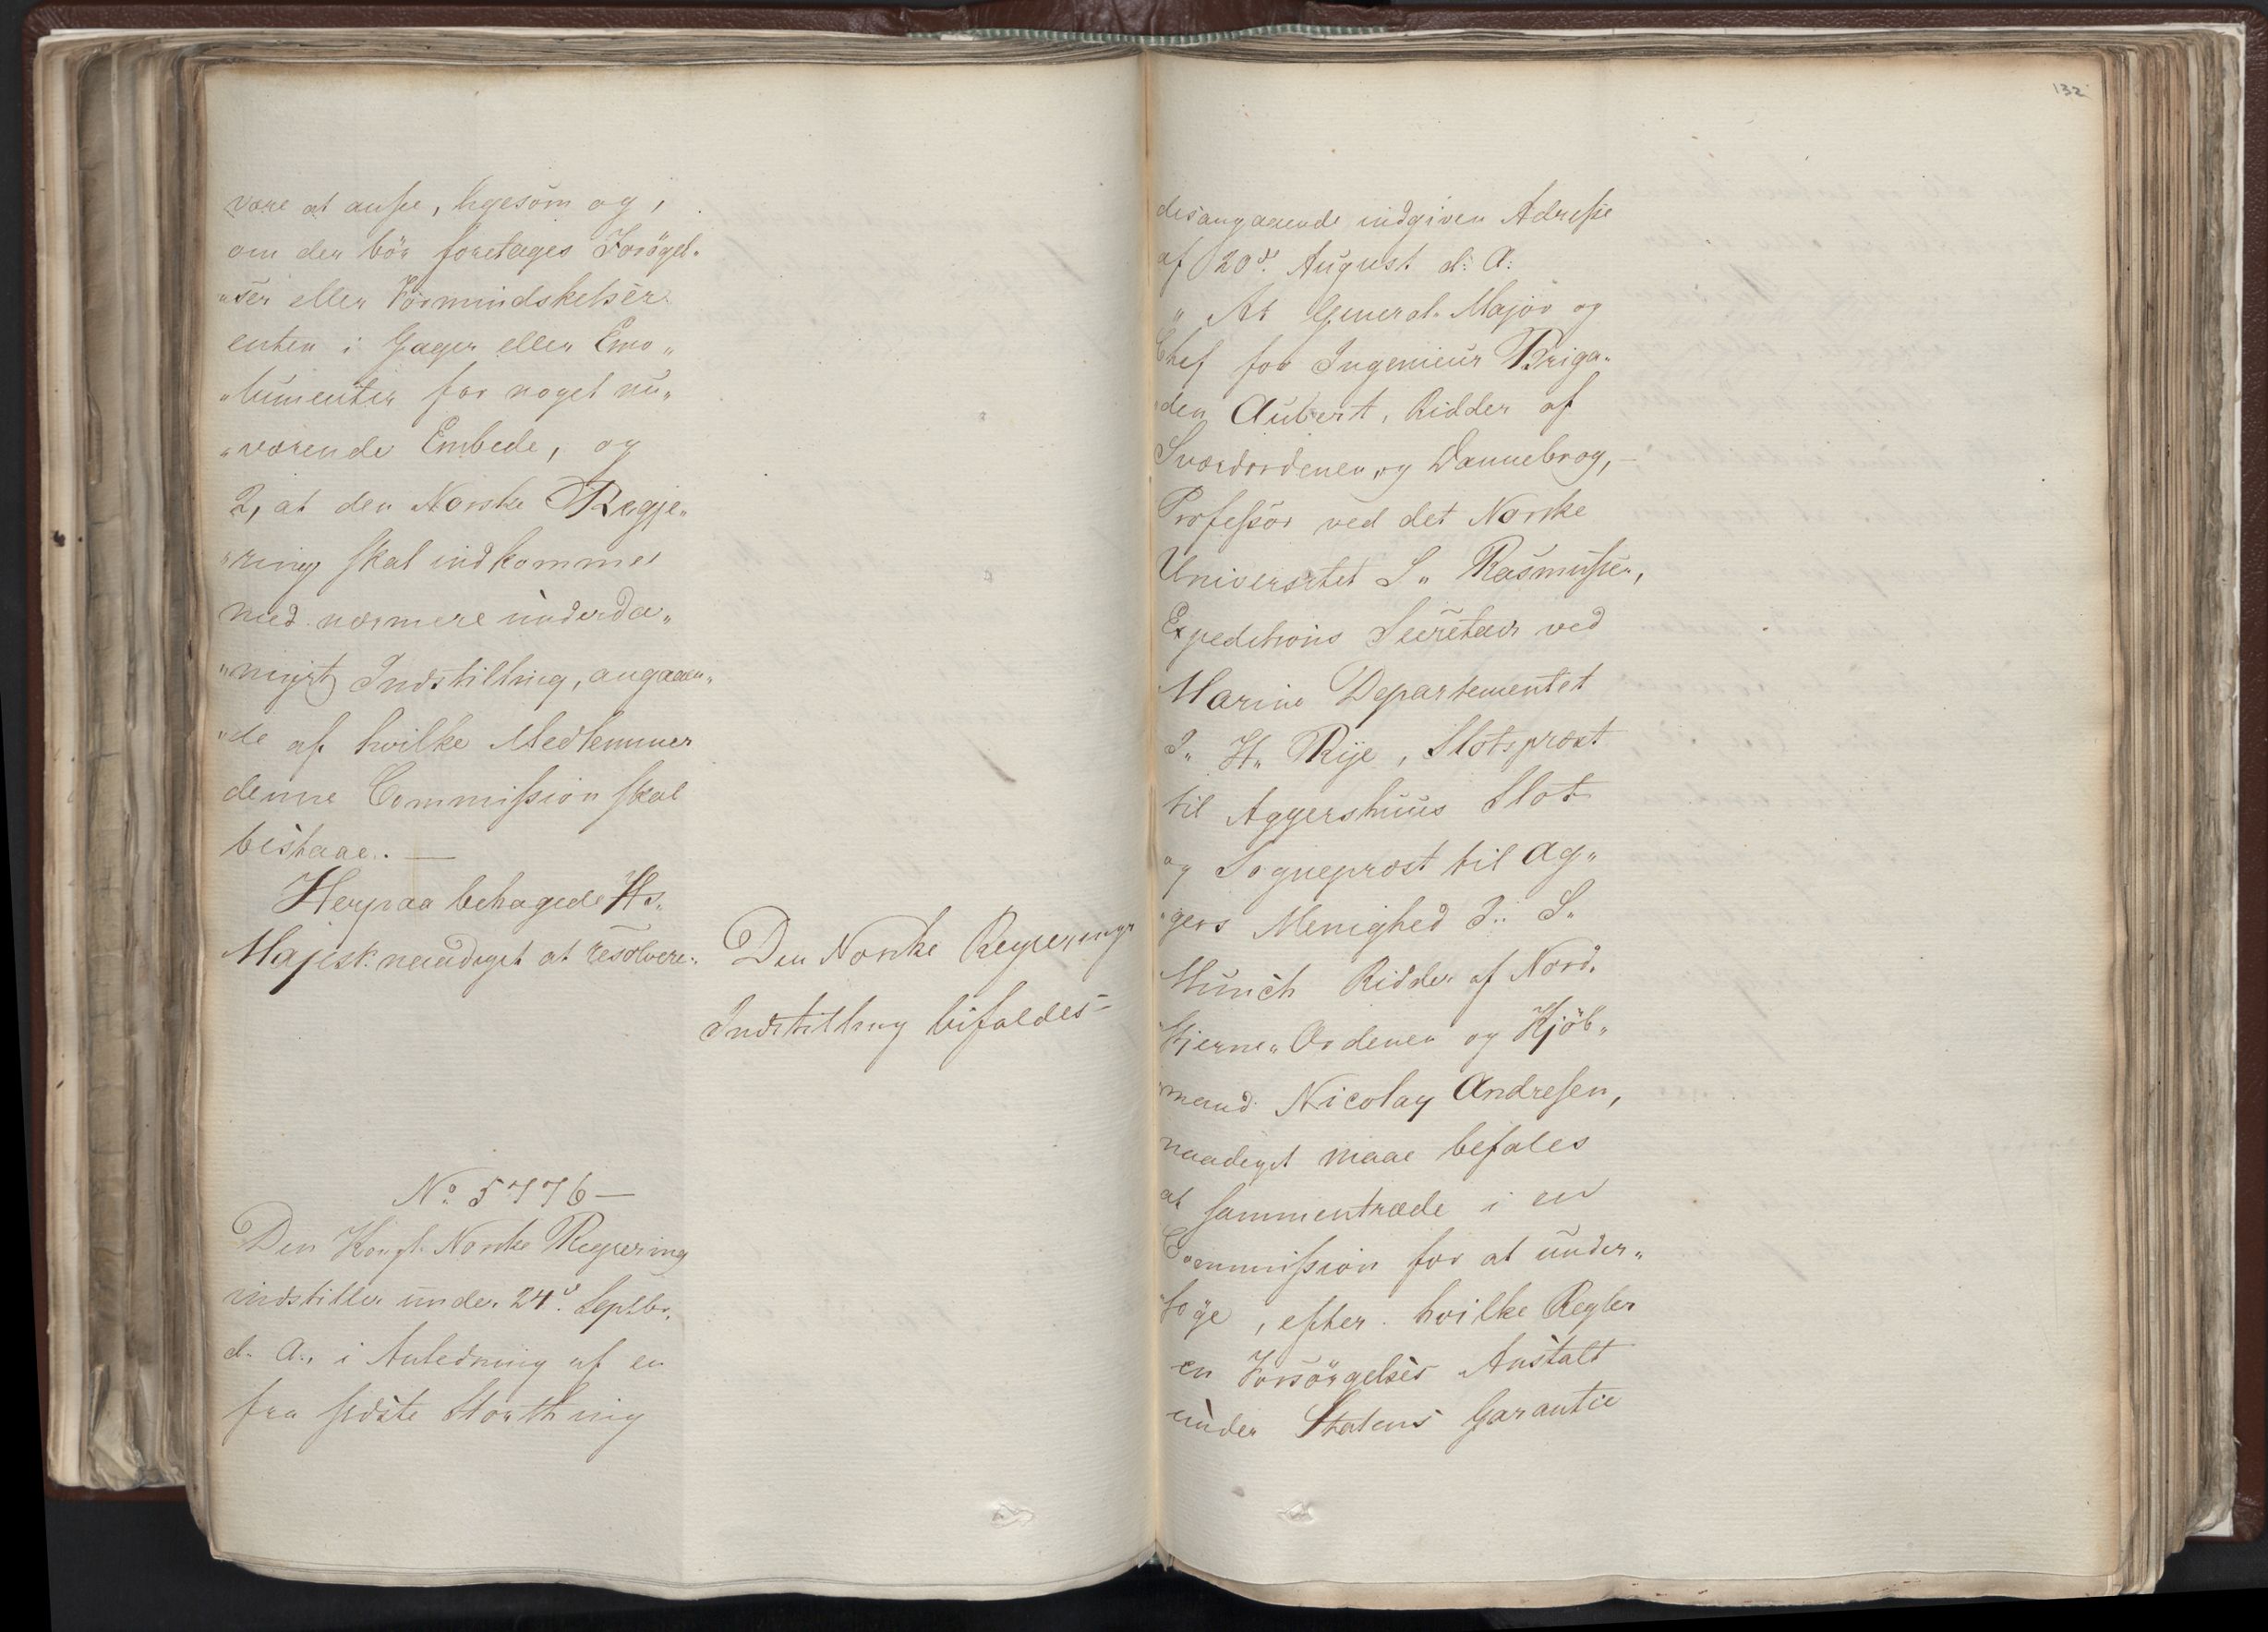 være at ansee, ligesom og,
om der bör foretages Forögel„
„ser eller Formindskelser
enten i Gager eller Emo„
„lumenter for noget nu„
„værende Embede, og
2, at den Norske Regje„
„ring skal indkomme
med nærmere underda„
„nigst Indstilling, angaaen„
„de af hvilke Medlemmer
denne Commission skal
bestaae. —
Herpaa behagede Hs.
Majest. naadigst at resolvere:
Den Norske Regjerings
Indstilling bifaldes —
No 5776 —
Den Kongl. Norske Regjering
indstiller under 24d. Septbr.
d. A., i Anledning af en
fra sidste Storthing
132
desangaaende indgiven Adresse
af 20d. August d: A:
„ At General-Major og
Chef for Ingenieur Briga„
„den Aubert, Ridder af
Sværdordenen og Dannebrog, —
Professor ved det Norske
Universitet S„ Rasmussen,
Expeditions Secretair ved
Marine Departementet
J„ H„ Rye, Slotspræst
til Aggershuus Slot
og Sognepræst til Ag„
„gers Menighed J.. S„
Munch Ridder af Nord„
„stjerne„Ordenen og Kjöb„
„mand Nicolay Andresen,
naadigst maae befales
at sammentræde i en
Commission for at under„
„söge, efter hvilke Regler
en Forsörgelses Anstalt
under Statens Garantie